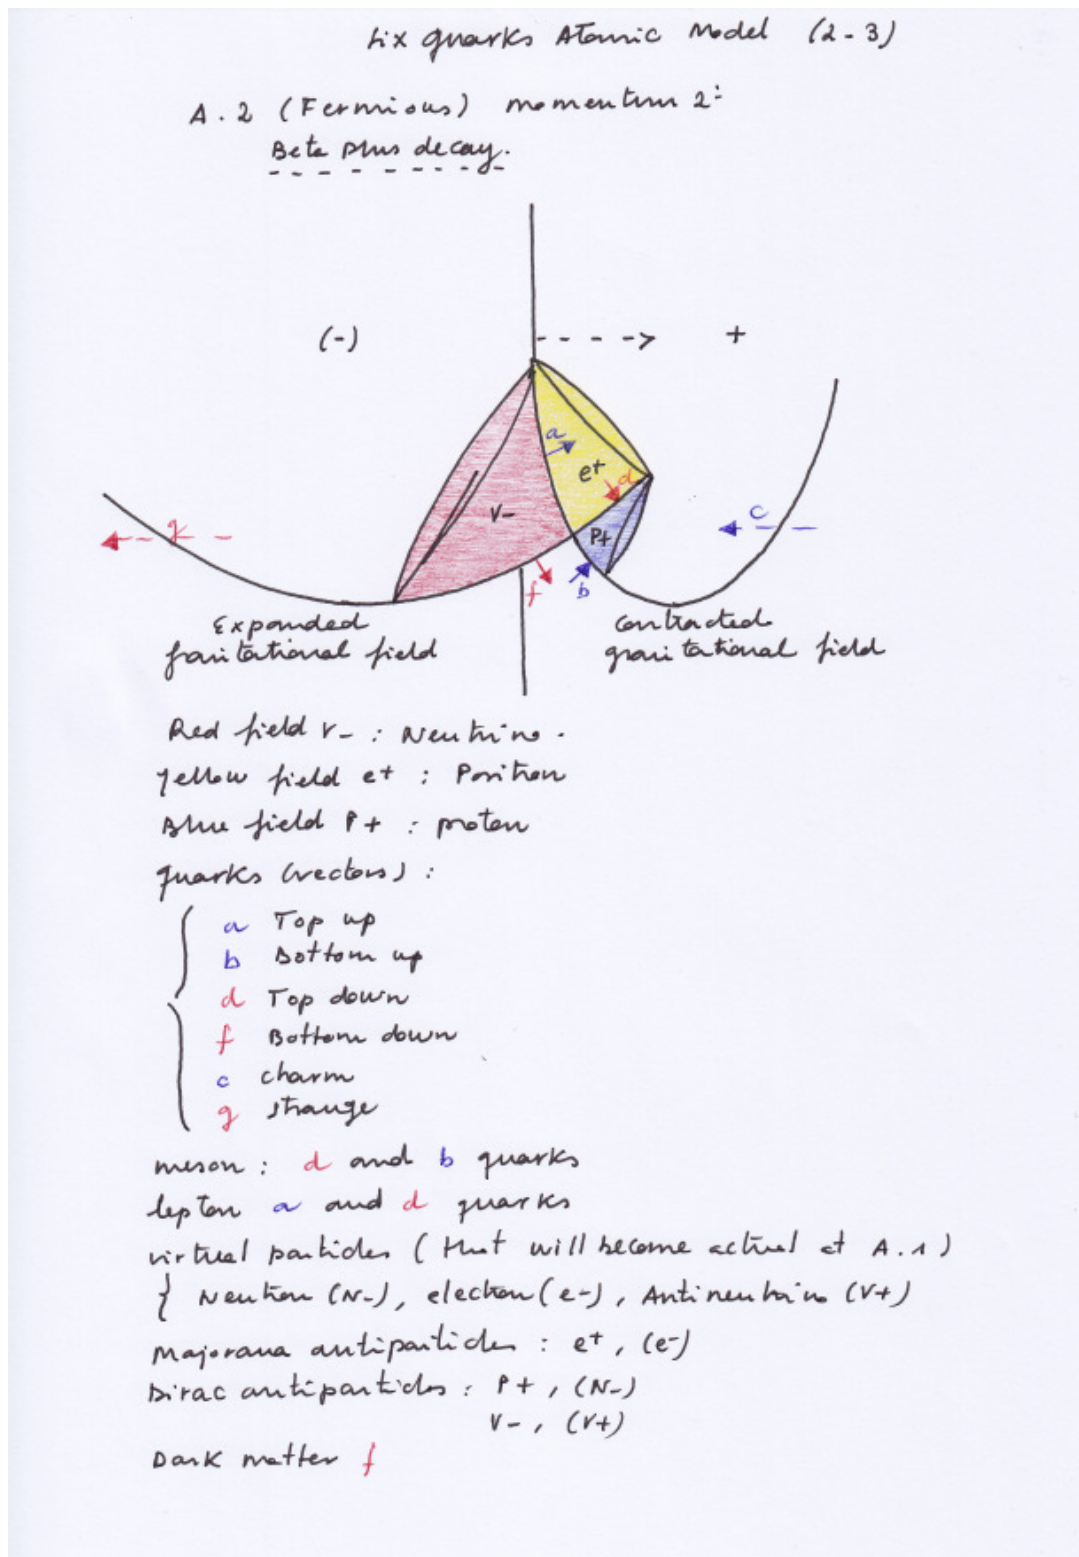 Six quarks Atomic Model (2-3)
A.2 (Fermions) momentum 2:
Beta plus decay.
(-) +
a
e+
d
V-
P+
g
c
f
b
Expanded gravitational field
Contracted gravitational field
Red field V- : Neutrino.
Yellow field e+ : Positron
Blue field P+ : proton
quarks (vectors) :
a Top up
b Bottom up
d Top down
f Bottom down
c charm
g strange
meson : d and b quarks
lepton a and d quarks
virtual particles (that will become actual at A.1)
Neutron (N-), electron (e-), Antineutrino (V+)
Majorana antiparticles : e+, (e-)
Dirac antiparticles : P+, (N-)
V-, (V+)
Dark matter f